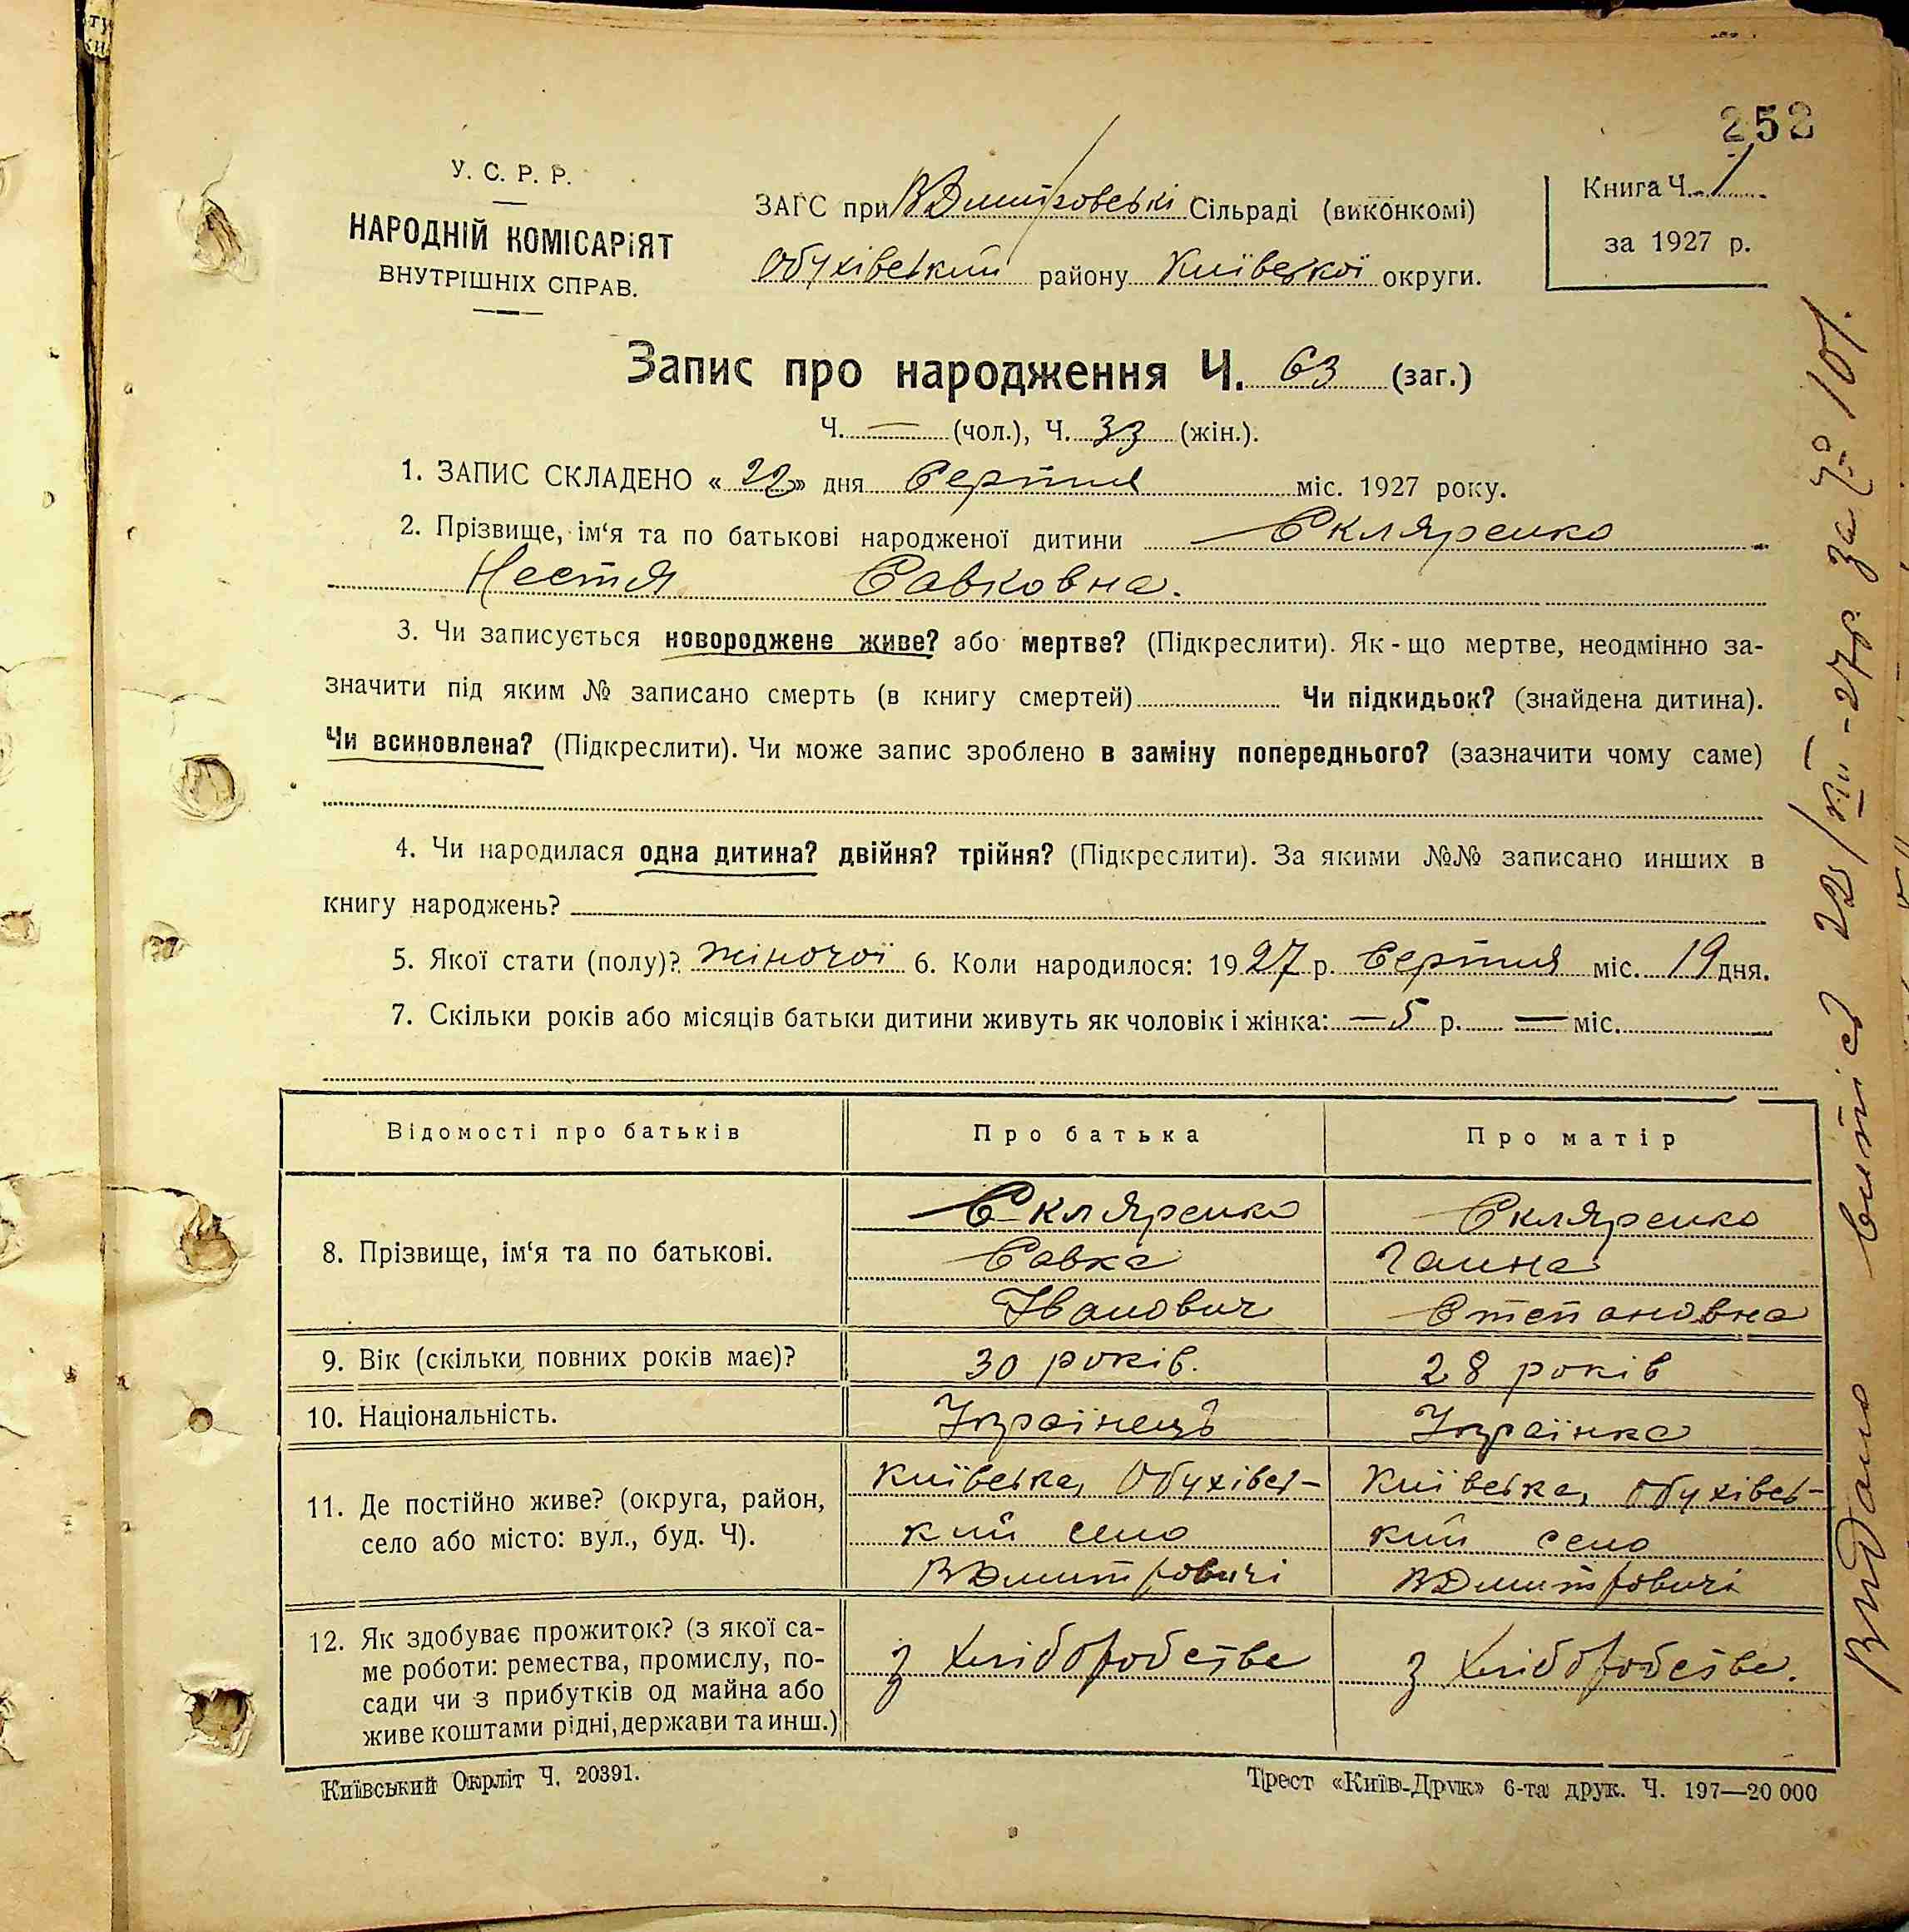 252
У. С. Р. Р.
НАРОДНІЙ КОМІСАРІЯТ
ВНУТРІШНІХ СПРАВ.
ЗАГС при ВДмитровські Сільраді (виконкомі)
Обухівський району Київської округи.
Книга Ч. 1
за 1927 р.
Запис про народження Ч. 63 (заг.)
Ч. — (чол.), Ч. 33 (жін.).
1. ЗАПИС СКЛАДЕНО « 22 » дня Серпня міс. 1927 року.
2. Прізвище, ім‘я та по батькові народженої дитини Скляренко
Настя Савковна.
3. Чи записується новороджене живе? або мертве? (Підкреслити). Як-що мертве, неодмінно за-
значити під яким № записано смерть (в книгу смертей) Чи підкидьок? (знайдена дитина).
Чи всиновлена? (Підкреслити). Чи може запис зроблено в заміну попереднього? (зазначити чому саме)
4. Чи народилася одна дитина? двійня? трійня? (Підкреслити). За якими №№ записано инших в
книгу народжень?
5. Якої стати (полу)? жіночої 6. Коли народилося: 1927 р. Серпня міс. 19 дня.
7. Скільки років або місяців батьки дитини живуть як чоловік і жінка: — 5 р. — міс.
Відомості про батьків Про батька Про матір
8. Прізвище, ім‘я та по батькові.
Скляренко Скляренко
Савка Ганна
Іванович Степановна
9. Вік (скільки повних років має)? 30 років. 28 років
10. Національність. Українець Українка
11. Де постійно живе? (округа, район,
село або місто: вул., буд. Ч).
Київська, Обухівсь- Київська, Обухівсь-
кий село кий село
ВДмитровичі ВДмитровичі
12. Як здобуває прожиток? (з якої са-
ме роботи: ремества, промислу, по-
сади чи з прибутків од майна або
живе коштами рідні, держави та инш.)
з хліборобства з хліборобства.
Київський Окрліт Ч. 20391.
Трест «Київ-Друк» 6-та друк. Ч. 197—20 000
Видано витяг 22/VIII-27р. за № 101.